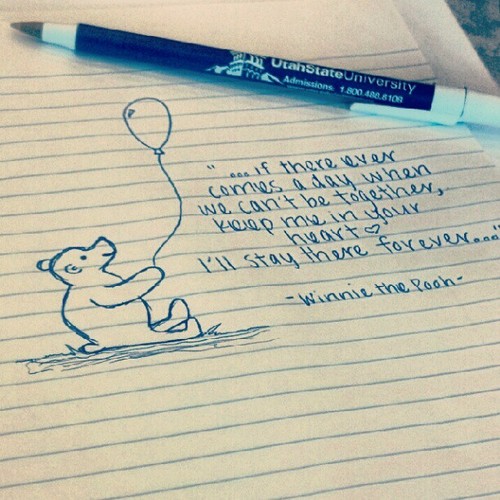 UtahStateUniversity
Admissions 1.800.488.8108
"...if there ever
comes a day when
we can't be together,
keep me in your
heart♡
I'll stay there forever..."
-Winnie the Pooh-